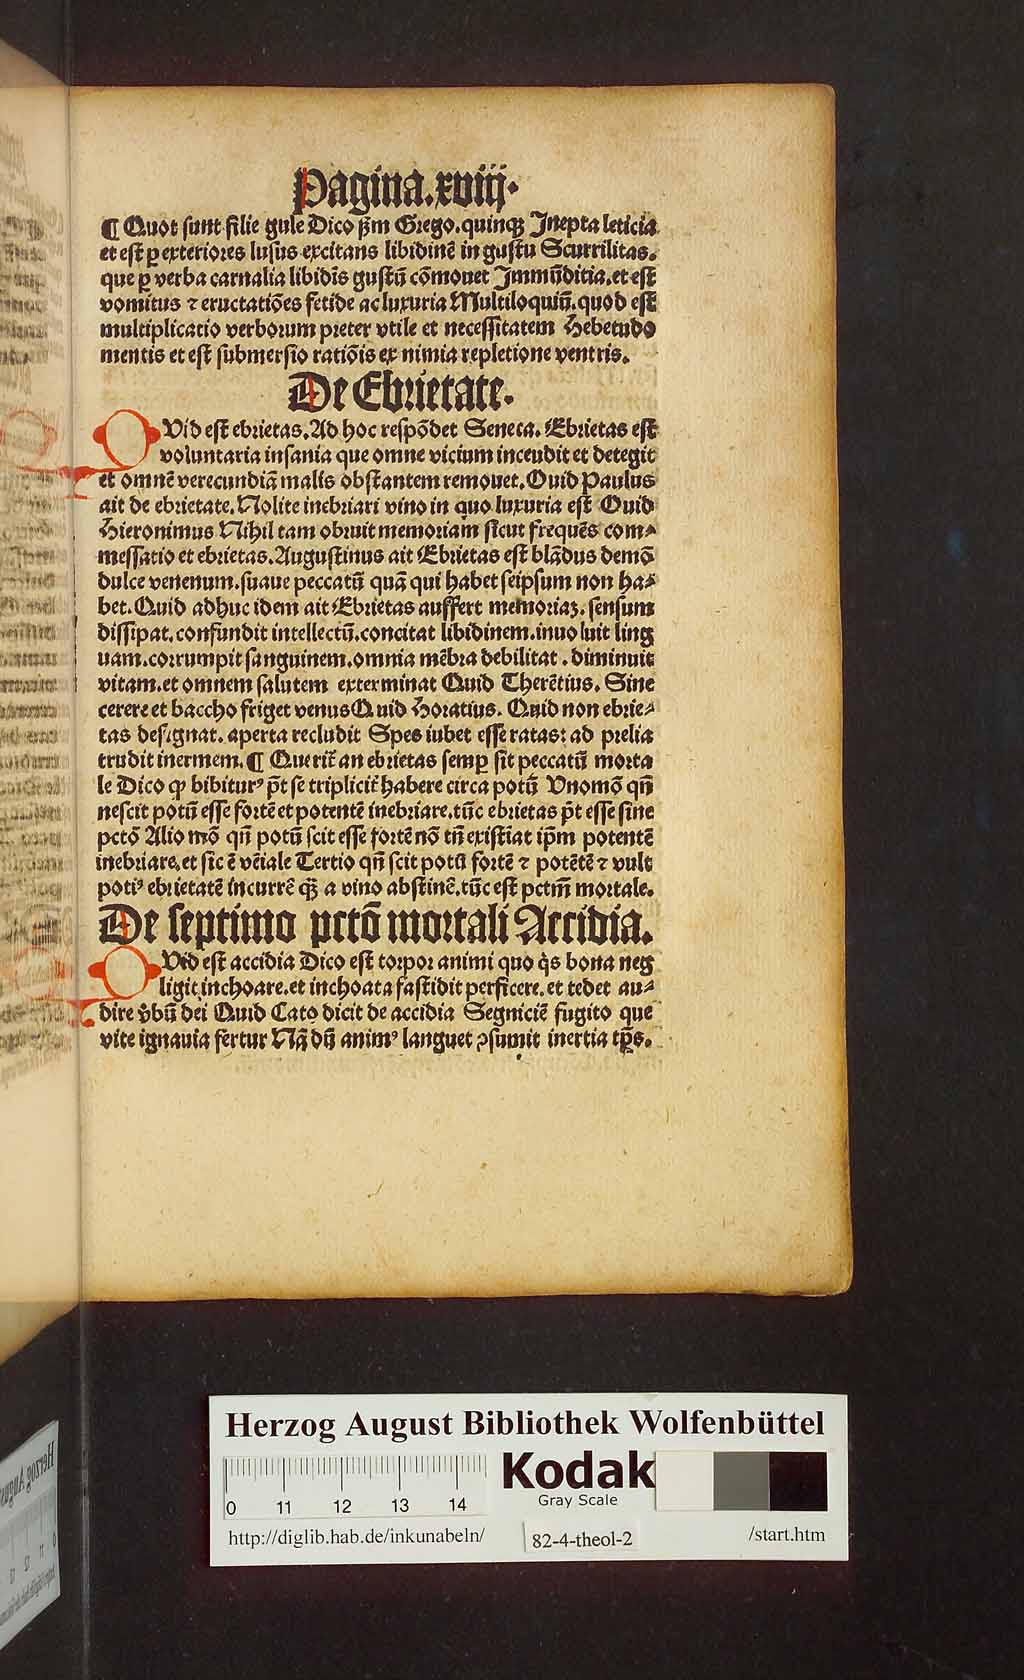 Pagina.xviij.
¶ Quot sunt filie gule Dico ẜm Grego.quinqꝫ Inepta leticia
et est ꝑ exteriores lusus excitans libidinē in gustu Scurrilitas.
que ꝑ verba carnalia libidīs gustū cōmouet Immūditia.et est
vomitus ⁊ eructatiōes fetide ac luxuria Multiloquiū.quod est
multiplicatio verborum preter vtile et necessitatem Hebetudo
mentis et est submersio ratiōis ex nimia repletione ventris.
De Ebrietate.
QVid est ebrietas.Ad hoc respōdet Seneca. Ebrietas est
voluntaria insania que omne vicium incendit et detegit
et omnē verecundiā malis obstantem remouet.Quid Paulus
ait de ebrietate.Nolite inebriari vino in quo luxuria est Quid
Hieronimus Nihil tam obruit memoriam sicut frequēs com⸗
messatio et ebrietas.Augustinus ait Ebrietas est blādus demō
dulce venenum.suaue peccatū quā qui habet seipsum non ha⸗
bet.Quid adhuc idem ait Ebrietas auffert memoriaꝫ.sensum
dissipat.confundit intellectū.concitat libidinem.inuoluit ling
uam.corrumpit sanguinem.omnia mēbra debilitat.diminuit
vitam.et omnem salutem exterminat Quid Therētius. Sine
cerere et baccho friget venus Quid Horatius. Quid non ebrie⸗
tas designat.aperta recludit Spes iubet esse ratas: ad prelia
trudit inermem.¶ Querit̄ an ebrietas semꝑ sit peccatū morta
le Dico ꝙ bibiturꝰ p̄t se triplicit̄ habere circa potū Vnomō qn̄
nescit potū esse fortē et potentē inebriare.tūc ebrietas p̄t esse sine
pctō Alio mō qn̄ potū scit esse fortē nō tn̄ existīat ip̄m potentē
inebriare.et sic ē vēiale Tertio qn̄ scit potū fortē ⁊ potētē ⁊ vult
potiꝰ ebrietatē incurrē qꝫ̄ a vino abstinē.tūc est pctm̄ mortale.
De septimo pctō mortali Accidia.
QVid est accidia Dico est torpor animi quo qͥs bona neg
ligit inchoare.et inchoata fastidit perficere.et tedet au⸗
dire v̄bū dei Quid Cato dicit de accidia Segniciē fugito que
vite ignauia fertur Nā dū animꝰ languet ꝯsumit inertia tp̄s.
Herzog August Bibliothek Wolfenbüttel
0 11 12 13 14
Kodak
Gray Scale
http://diglib.hab.de/inkunabeln/ 82-4-theol-2 /start.htm